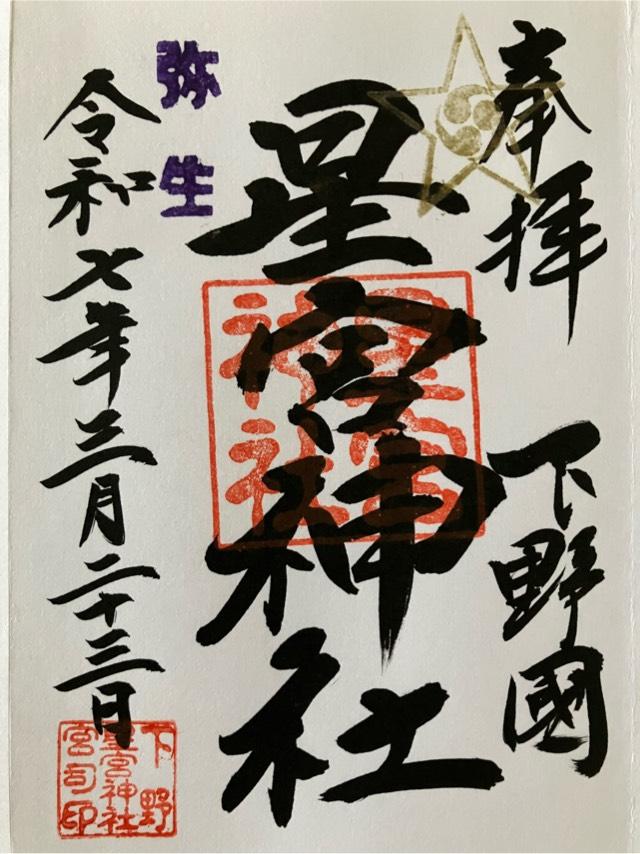 奉拝
下野國
星宮神社
星宮神社
弥生
令和七年三月二十三日
下野
星宮神社
宮司印